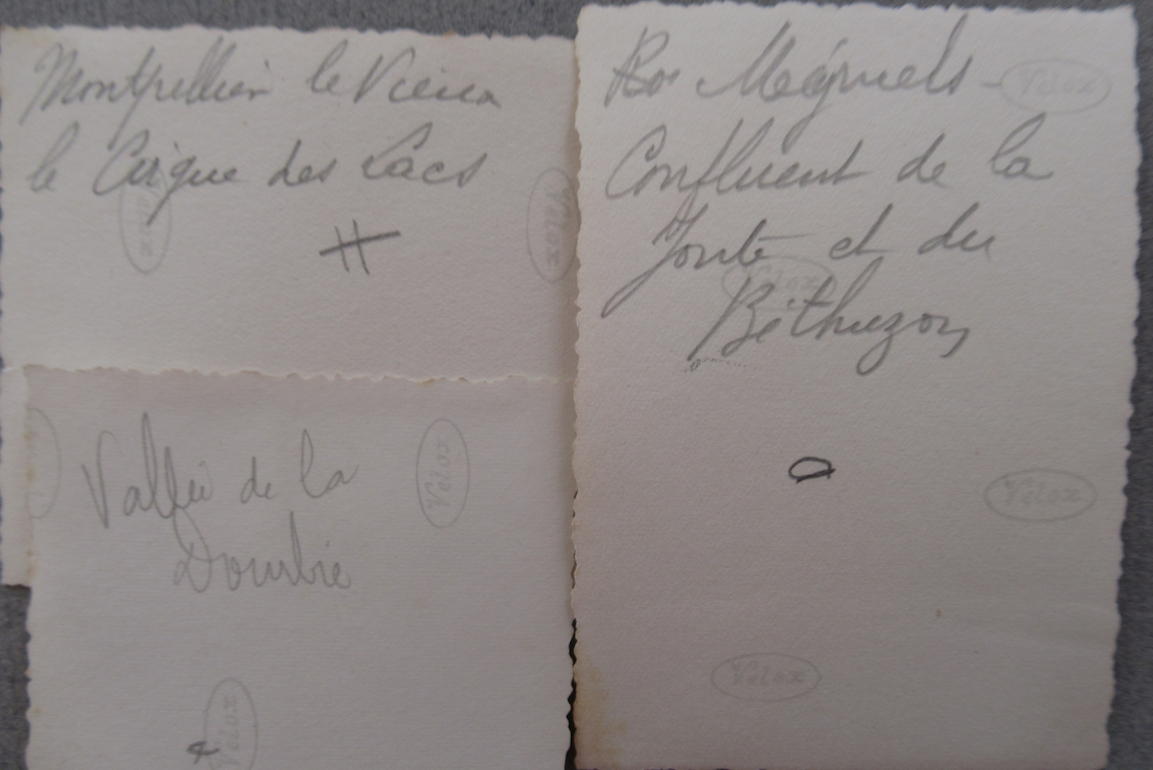 Montpellier le Vieux
le Cirque des Lacs
Velox
Velox
Vallée de la
Dourbie
Velox
Velox
Meyrueis -
Velox
Confluent de la
Jonte et du
Velox
Béthuzon
Velox
Velox